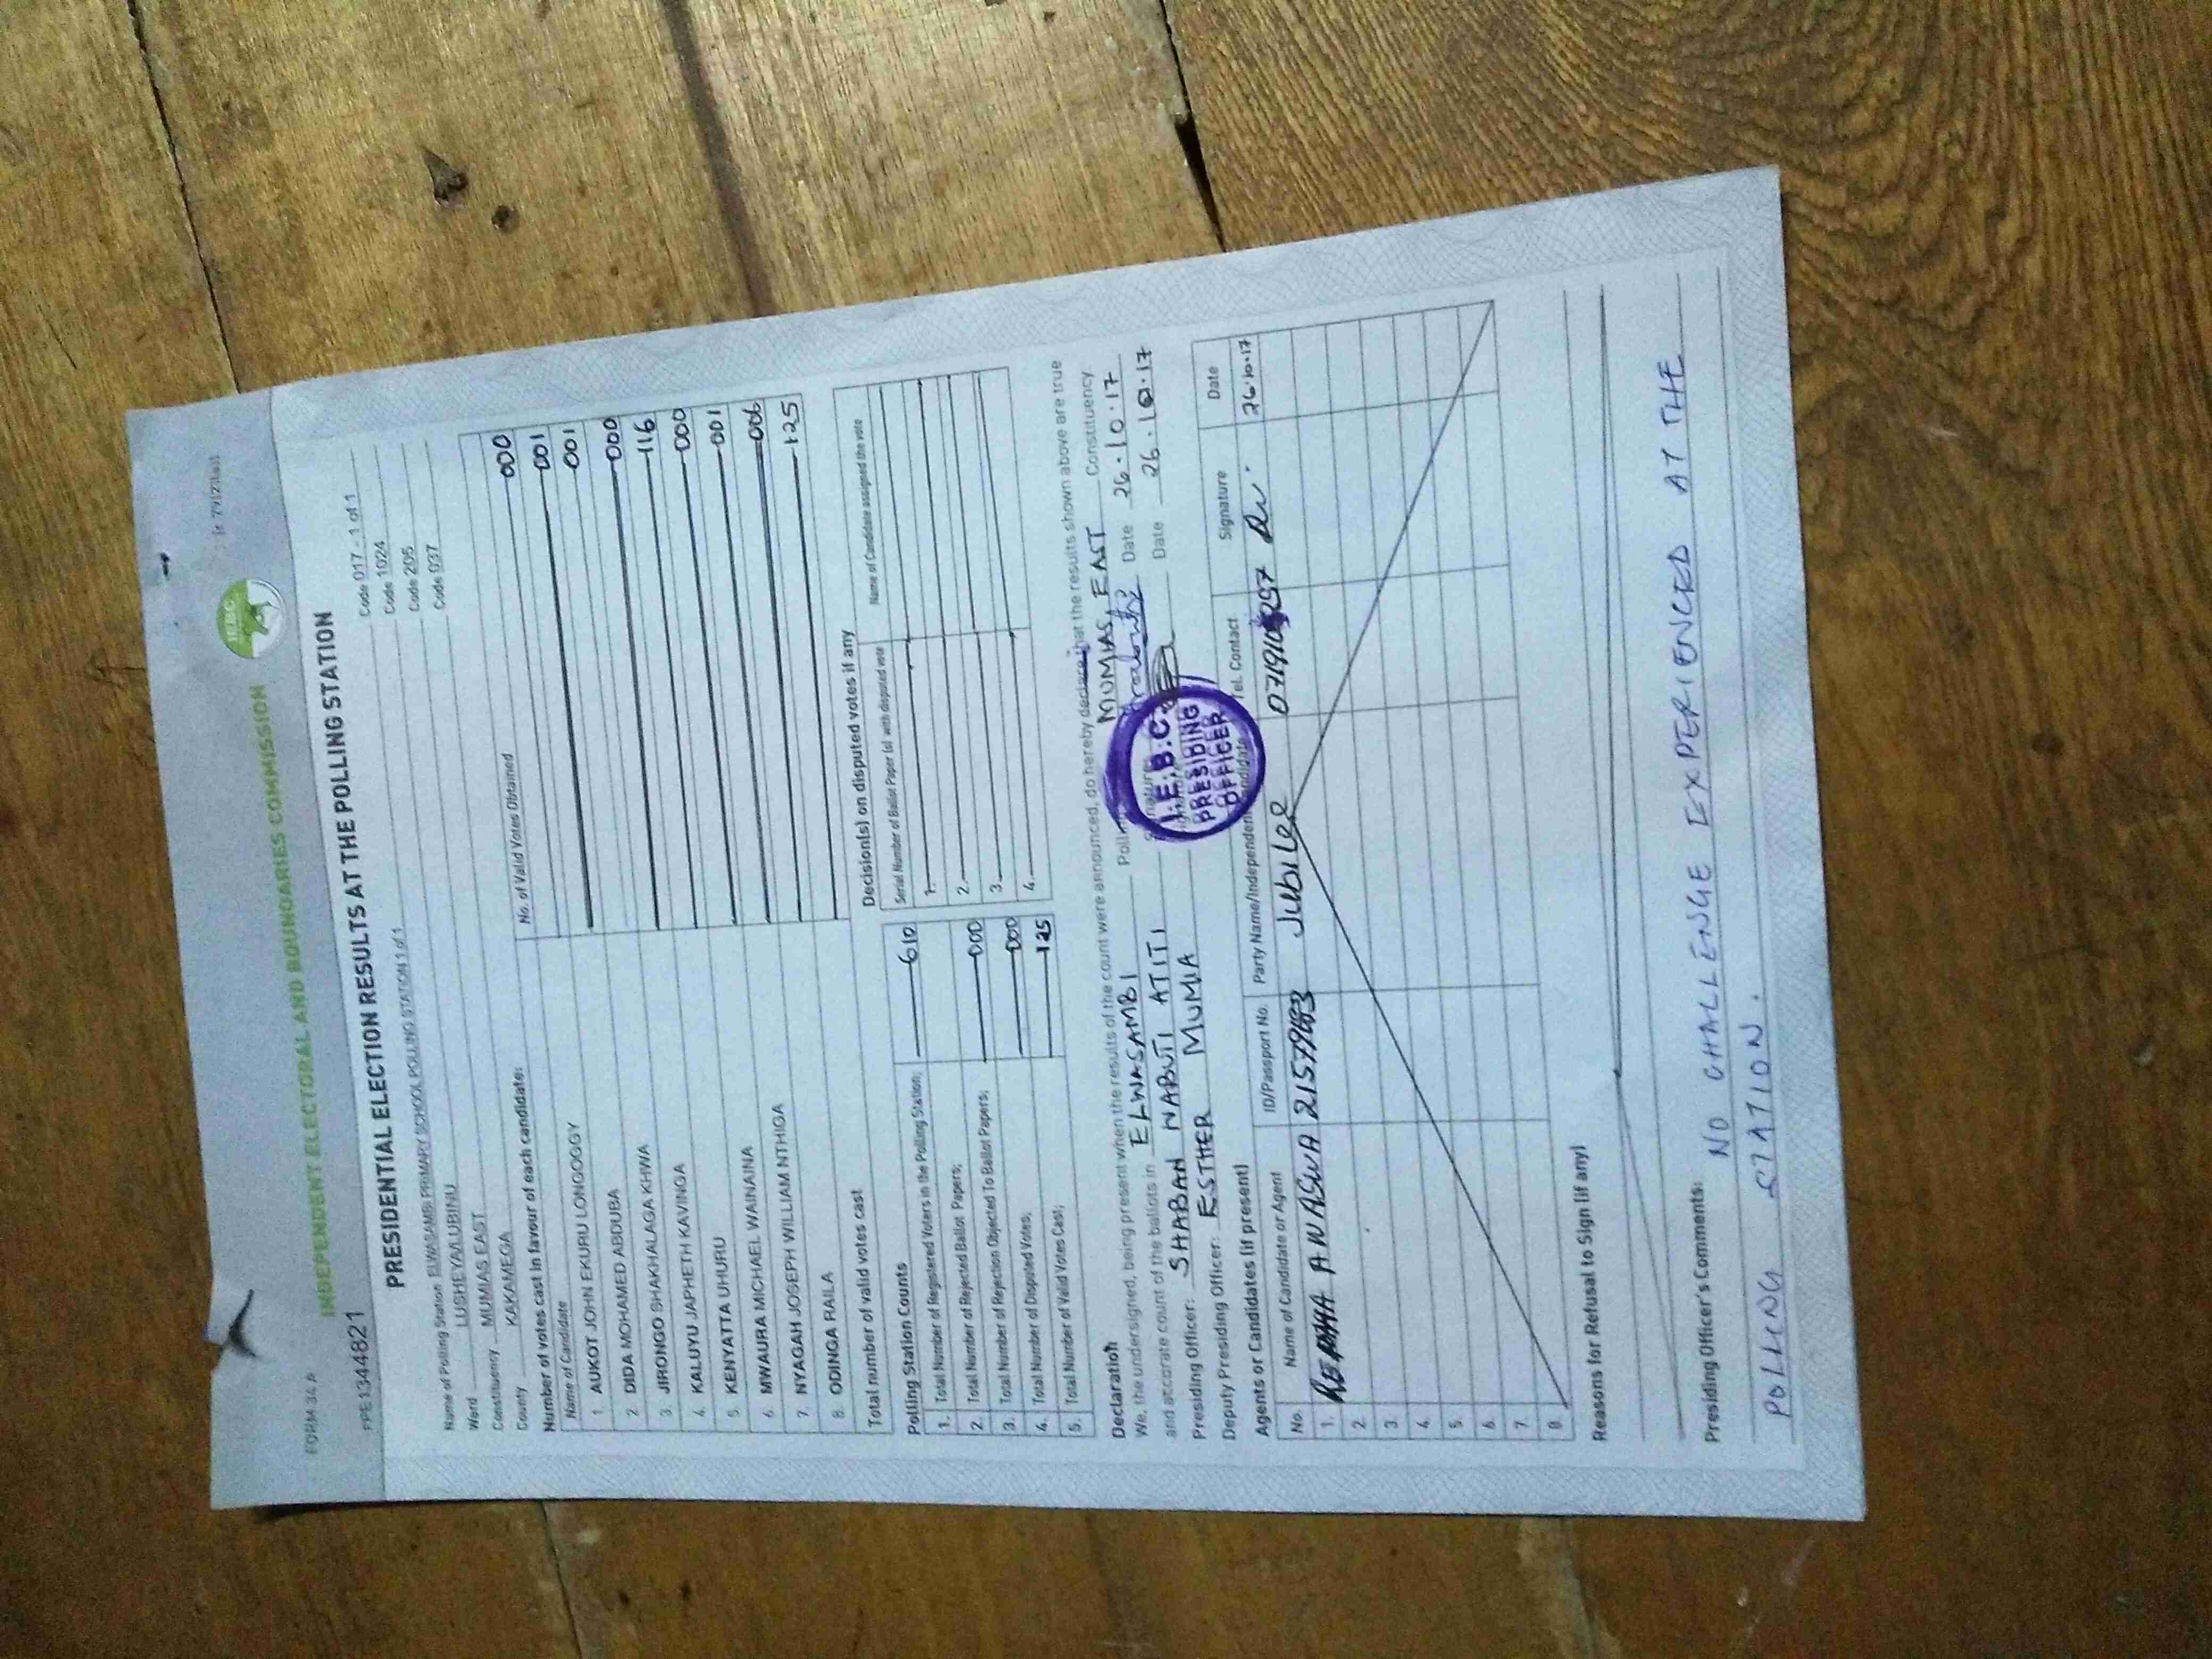 FORM 34 A
INDEPENDENT ELECTORAL AND BOUNDARIES COMMISSION
IEBC
PPE1344821
PRESIDENTIAL ELECTION RESULTS AT THE POLLING STATION
Name of Polling Station ELWASAMBI PRIMARY SCHOOL POLLING STATION 1 of 1 Code 017 - 1 of 1
Ward LUSHEYA/LUBINU Code 1024
Constituency MUMIAS EAST Code 205
County KAKAMEGA Code 037
Number of votes cast in favour of each candidate:
Name of Candidate No. of Valid Votes Obtained
1. AUKOT JOHN EKURU LONGOGGY 000
2. DIDA MOHAMED ABDUBA 001
3. JIRONGO SHAKHALAGA KHWA 001
4. KALUYU JAPHETH KAVINGA 000
5. KENYATTA UHURU 116
6. MWAURA MICHAEL WAINAINA 000
7. NYAGAH JOSEPH WILLIAM NTHIGA 001
8. ODINGA RAILA 006
Total number of valid votes cast 125
Polling Station Counts
1. Total Number of Registered Voters in the Polling Station; 610
2. Total Number of Rejected Ballot Papers; 000
3. Total Number of Rejection Objected To Ballot Papers; 000
4. Total Number of Disputed Votes;
5. Total Number of Valid Votes Cast; 125
Decision(s) on disputed votes if any
Serial Number of Ballot Paper (s) with disputed vote Name of Candidate assigned the vote
1.
2.
3.
4.
Declaration
We, the undersigned, being present when the results of the count were announced, do hereby declare that the results shown above are true
and accurate count of the ballots in ELWASAMBI Polling MUMIAS EAST Constituency
Presiding Officer: SHABAN NABUTI ATITI Date 26.10.17
Deputy Presiding Officer: ESTHER MUMIA Date 26.10.17
I.E.B.C.
PRESIDING
OFFICER
Agents or Candidates (if present)
No. Name of Candidate or Agent ID/Passport No. Party Name/Independent Candidate Tel. Contact Signature Date
1. ANASWA Jubilee 26.10.17
2.
3.
4.
5.
6.
7.
8.
Reasons for Refusal to Sign (if any)
Presiding Officer's Comments: NO CHALLENGE EXPERIENCED AT THE
POLLING STATION.